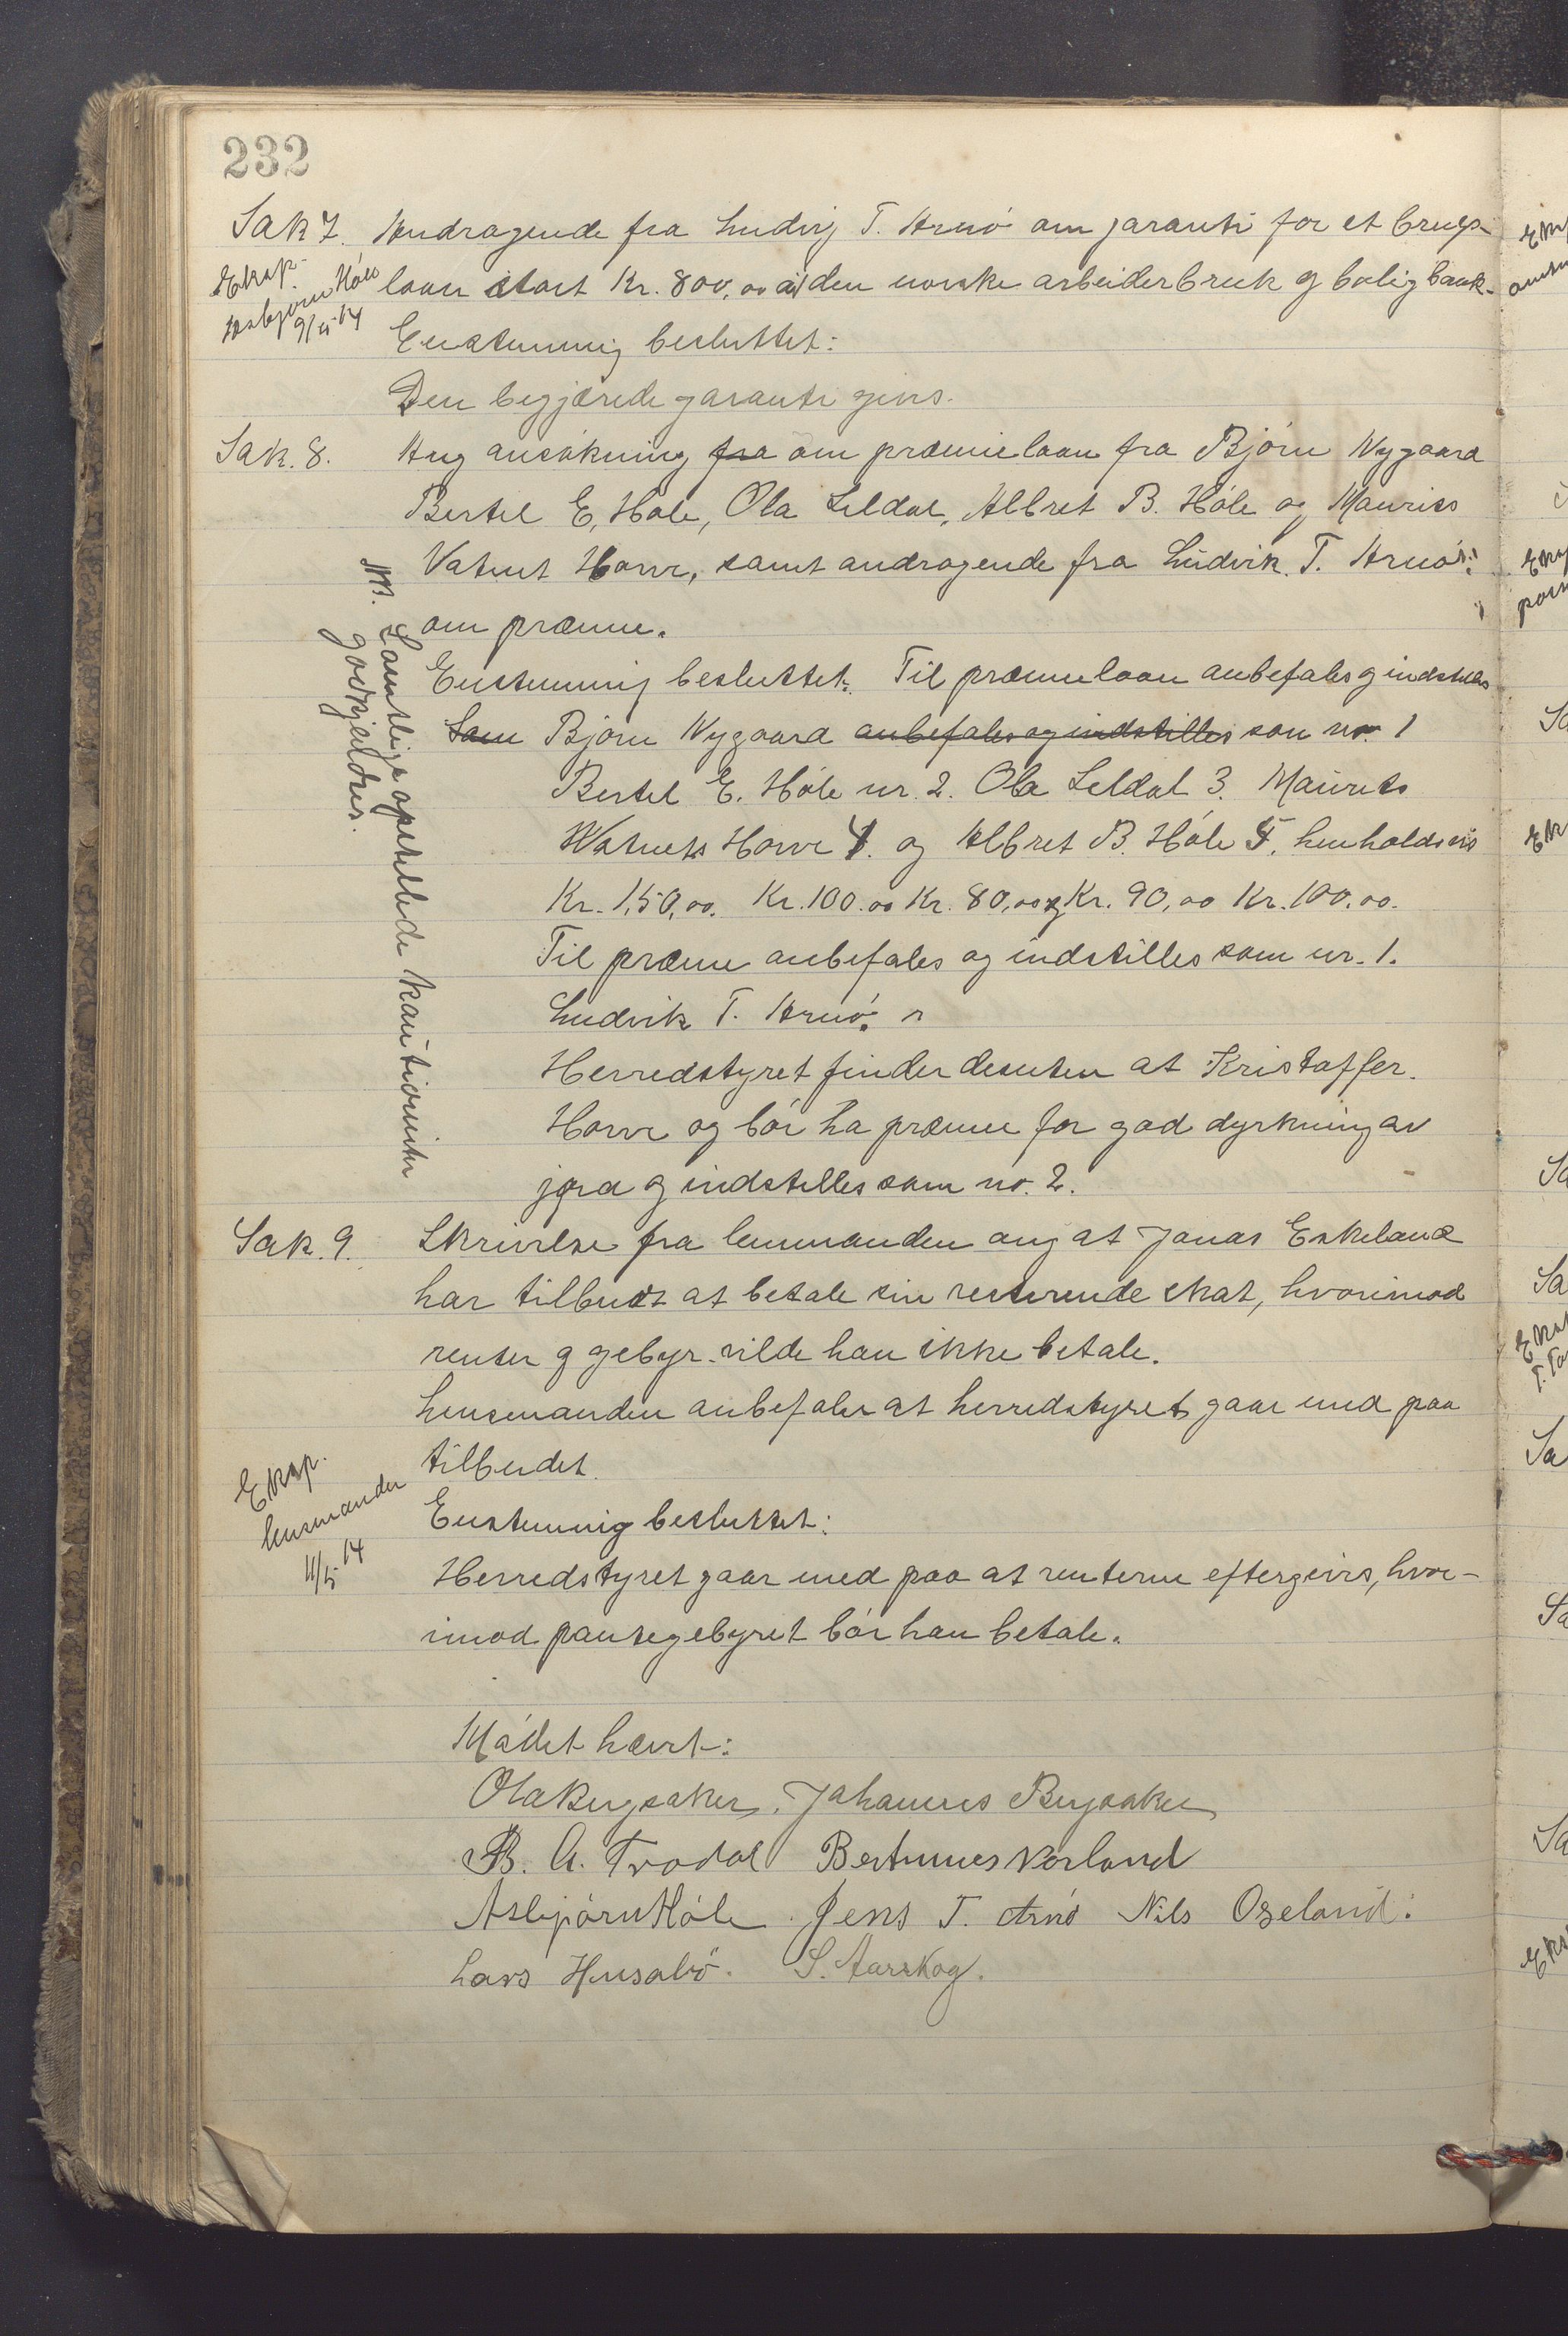 232
Sak 7. Andragende fra Ludvig T. Arnö om garanti for et brugs-
laan stort Kr. 800,00 av den norske arbeiderbruk og boligbank.
Eksp.
Asbjørn Höle
9/5 14
Enstemmig besluttet:
Den begjærede garanti gives.
Sak. 8. Ang ansökning fra om præmielaan fra Björn Nygaard
Bertel E. Höle, Ola Leldal, Albret B. Höle og Maurits
Vatnet Horve, samt andragende fra Ludvik T. Arnö
om præmie.
Enstemmig besluttet: Til præmielaan anbefales og indstilles
Som Björn Nygaard anbefales og indstilles som nr. 1
Bertel E. Höle nr. 2. Ola Leldal 3. Maurits
Watnets Horve 4. og Albret B. Höle 5. henholdsvis
Kr. 150,00. Kr. 100.00 Kr. 80,00 og Kr. 90,00 Kr. 100.00.
Til præmie anbefales og indstilles som nr. 1.
Ludvik T. Arnö.
Herredstyret finder desuten at Kristoffer
Horve og bör ha præmie for god dyrkning av
jord og indstilles som no. 2.
M. Samtlige opstillede kautionister
godkjendtes.
Sak. 9. Skrivelse fra lensmanden ang at Jonas Eskeland
har tilbudt at betale sin resterende skat, hvorimod
renter og gebyr vilde han ikke betale.
Lensmanden anbefaler at herredstyret gaar med paa
tilbudet.
Eksp.
lensmanden
11/5 14
Enstemmig besluttet:
Herredstyret gaar med paa at renterne eftergives, hvor-
imod pantegebyret bör han betale.
Mödet hævet:
Ola Bergsaker. Johannes Bergsaker
B. A. Trodal Bertinnes Norland
Asbjörn Höle. Jens T. Arnö Nils Oseland.
Lars Husabö. S. Aarskog.